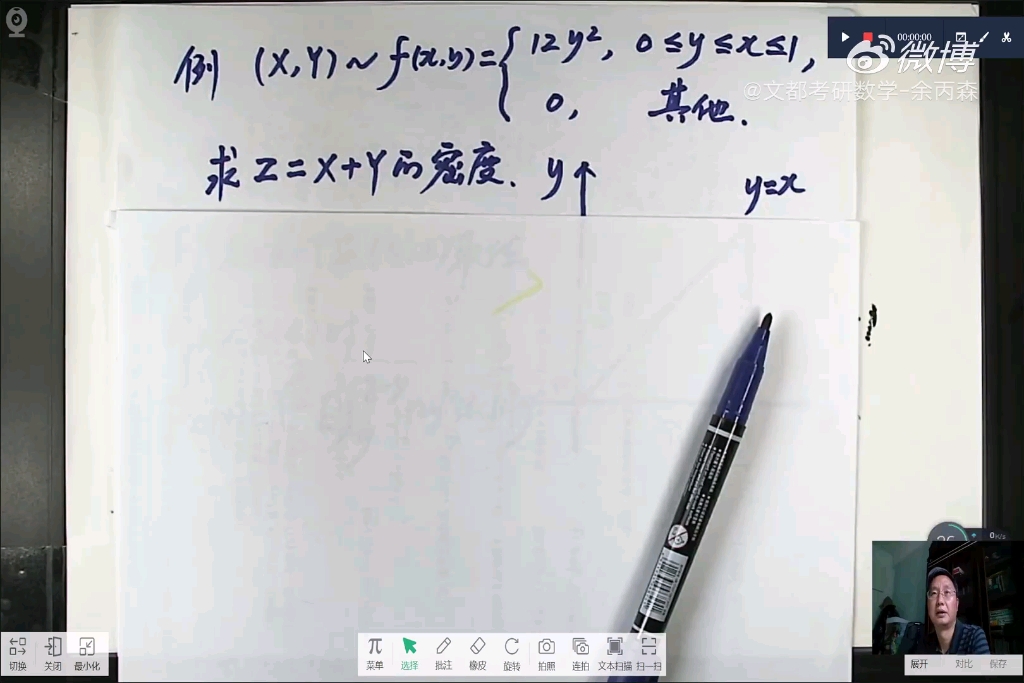 00:00:00
微博
@文都考研数学-余丙森
例 (X,Y)~f(x,y)={12y², 0≤y≤x≤1,
0, 其他.
求 Z=X+Y的密度.
y
y=x
切换 关闭 最小化
菜单 选择 批注 橡皮 旋转 拍照 连拍 文本扫描 扫一扫
展开 对比 保存